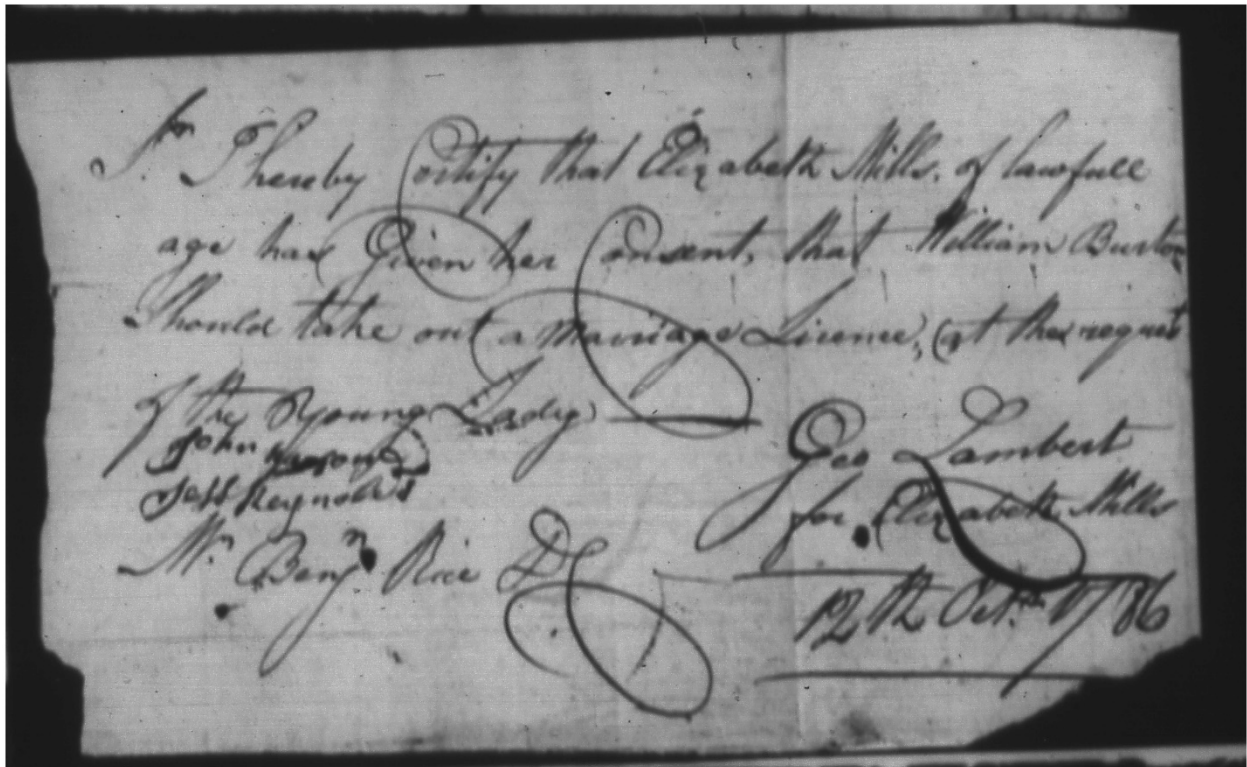 Sr. I hereby Certify that Elizabeth Mills, of lawfull
age has Given her Consent, that William Burton
Should take out a Marriage Licence, (at the request
of the Young Lady)
John
Jess Reynolds
Geo Lambert
for Elizabeth Mills
Mr. Benjn Rice DC
12th Octr. 1786